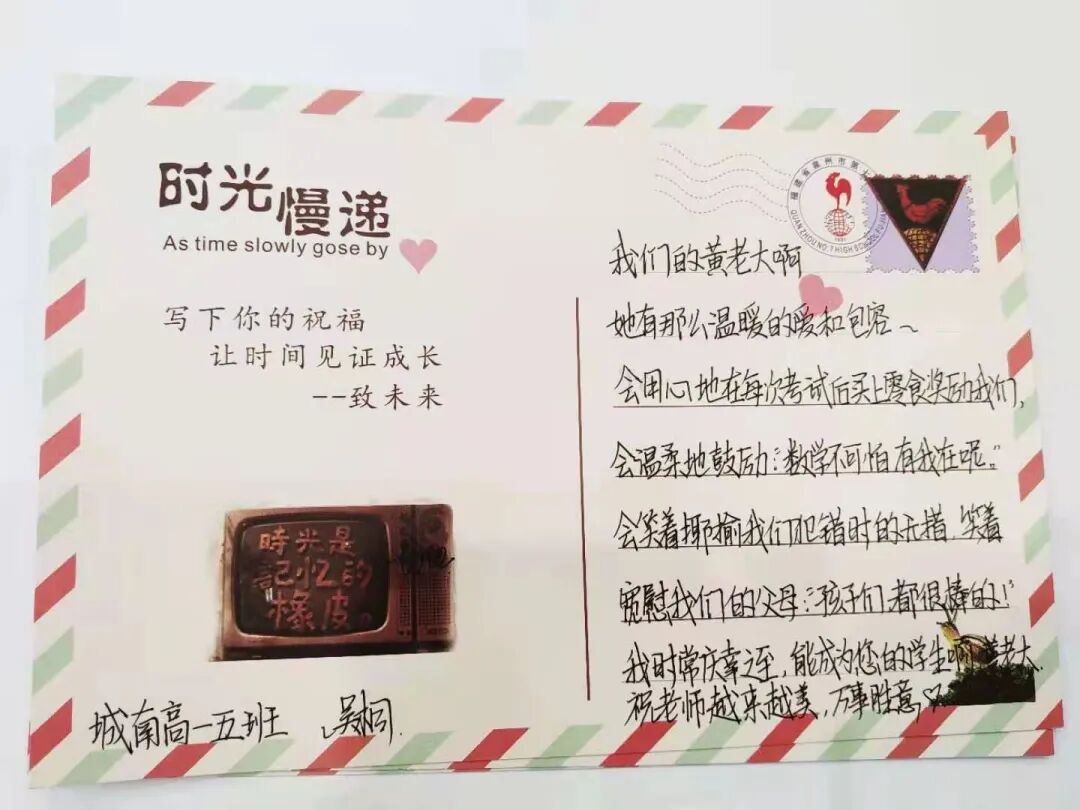 时光慢递
As time slowly gose by
写下你的祝福
让时间见证成长
--致未来
時光是
記忆的
橡皮。
城南高一五班 吴桐.
QUANZHOU NO.1 HIGH SCHOOL FUJIAN
我们的黄老大啊
她有那么温暖的爱和包容～
会用心地在每次考试后买上零食奖励我们,
会温柔地鼓励:“数学不可怕有我在呢。”
会笑着揶揄我们犯错时的无措,笑着
宽慰我们的父母:“孩子们都很棒的!”
我时常庆幸还能成为您的学生啊 黄老大.
祝老师越来越美,万事胜意♡